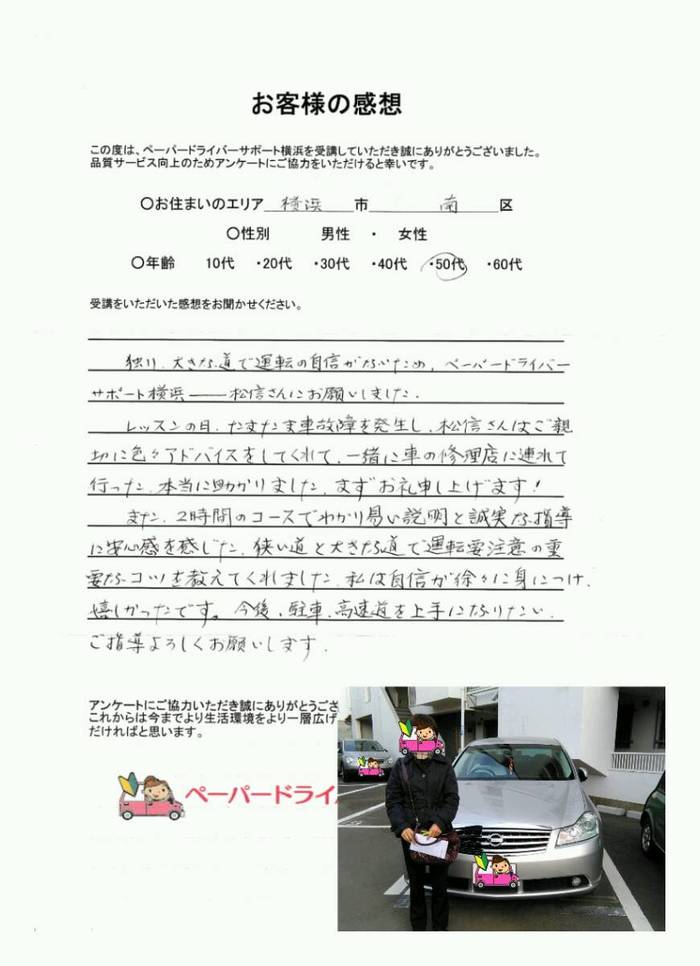 お客様の感想
この度は、ペーパードライバーサポート横浜を受講していただき誠にありがとうございました。
品質サービス向上のためアンケートにご協力をいただけると幸いです。
〇お住まいのエリア 横浜 市 南 区
〇性別 男性 ・ 女性
〇年齢 10代 ・20代 ・30代 ・40代 ・50代 ・60代
受講をいただいた感想をお聞かせください。
独り、大きな道で運転の自信がないため、ペーパードライバー
サポート横浜——松信さんにお願いしました.
レッスンの日、たまたま車故障を発生し、松信さんはご親
切に色々アドバイスをしてくれて、一緒に車の修理店に連れて
行った、本当に助かりました、まずお礼申し上げます!
また、2時間のコースでわかり易い説明と誠実な指導
に安心感を感じた、狭い道と大きな道で運転要注意の重
要なコツを教えてくれました、私は自信が徐々に身につけ、
嬉しかったです。今後、駐車、高速道を上手になりたい、
ご指導よろしくお願いします.
アンケートにご協力いただき誠にありがとうござ
これからは今までより生活環境をより一層広げ
だければと思います。
ペーパードライ